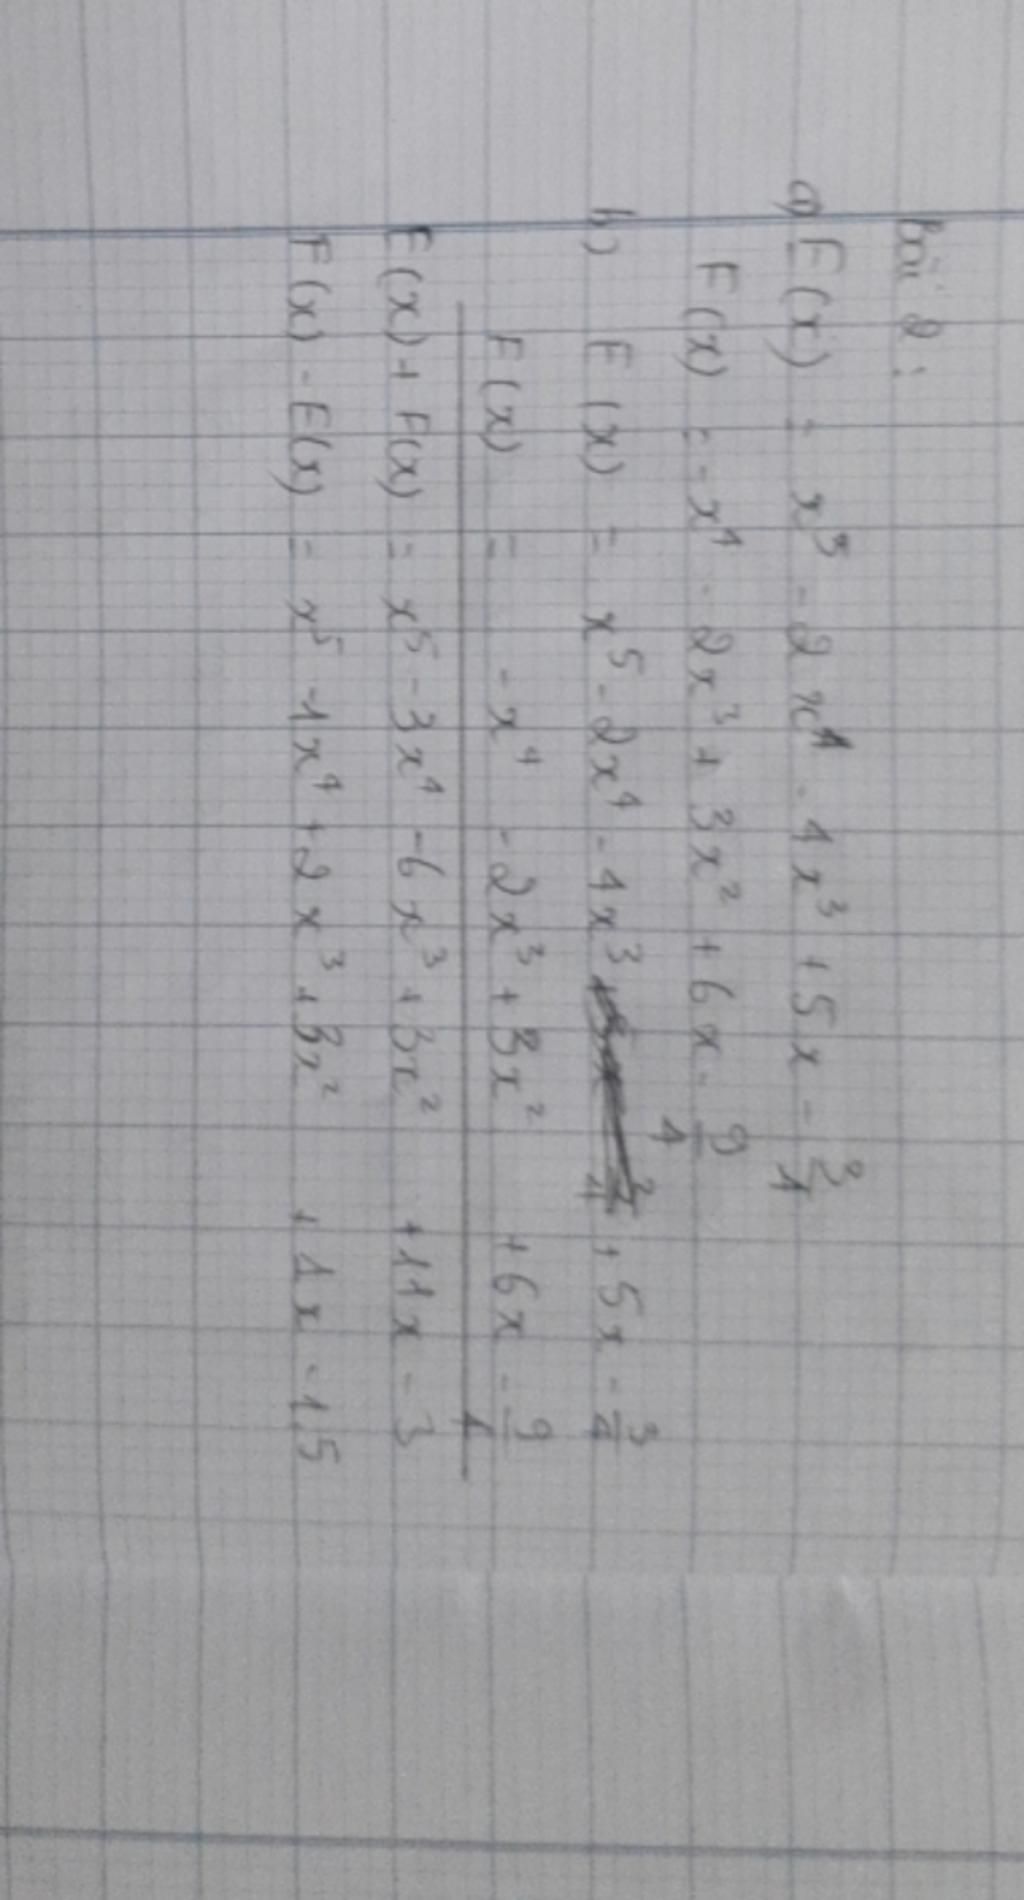 Bài 2:
a) E(x) = x⁵ - 2x⁴ - 4x³ + 5x - 3/4
F(x) = -x⁴ - 2x³ + 3x² + 6x - 9/4
b) E(x) = x⁵ - 2x⁴ - 4x³ + 5x - 3/4
F(x) = -x⁴ - 2x³ + 3x² + 6x - 9/4
E(x) + F(x) = x⁵ - 3x⁴ - 6x³ + 3x² + 11x - 3
F(x) - E(x) = x⁵ - 1x⁴ + 2x³ + 3x² + 1x - 1,5